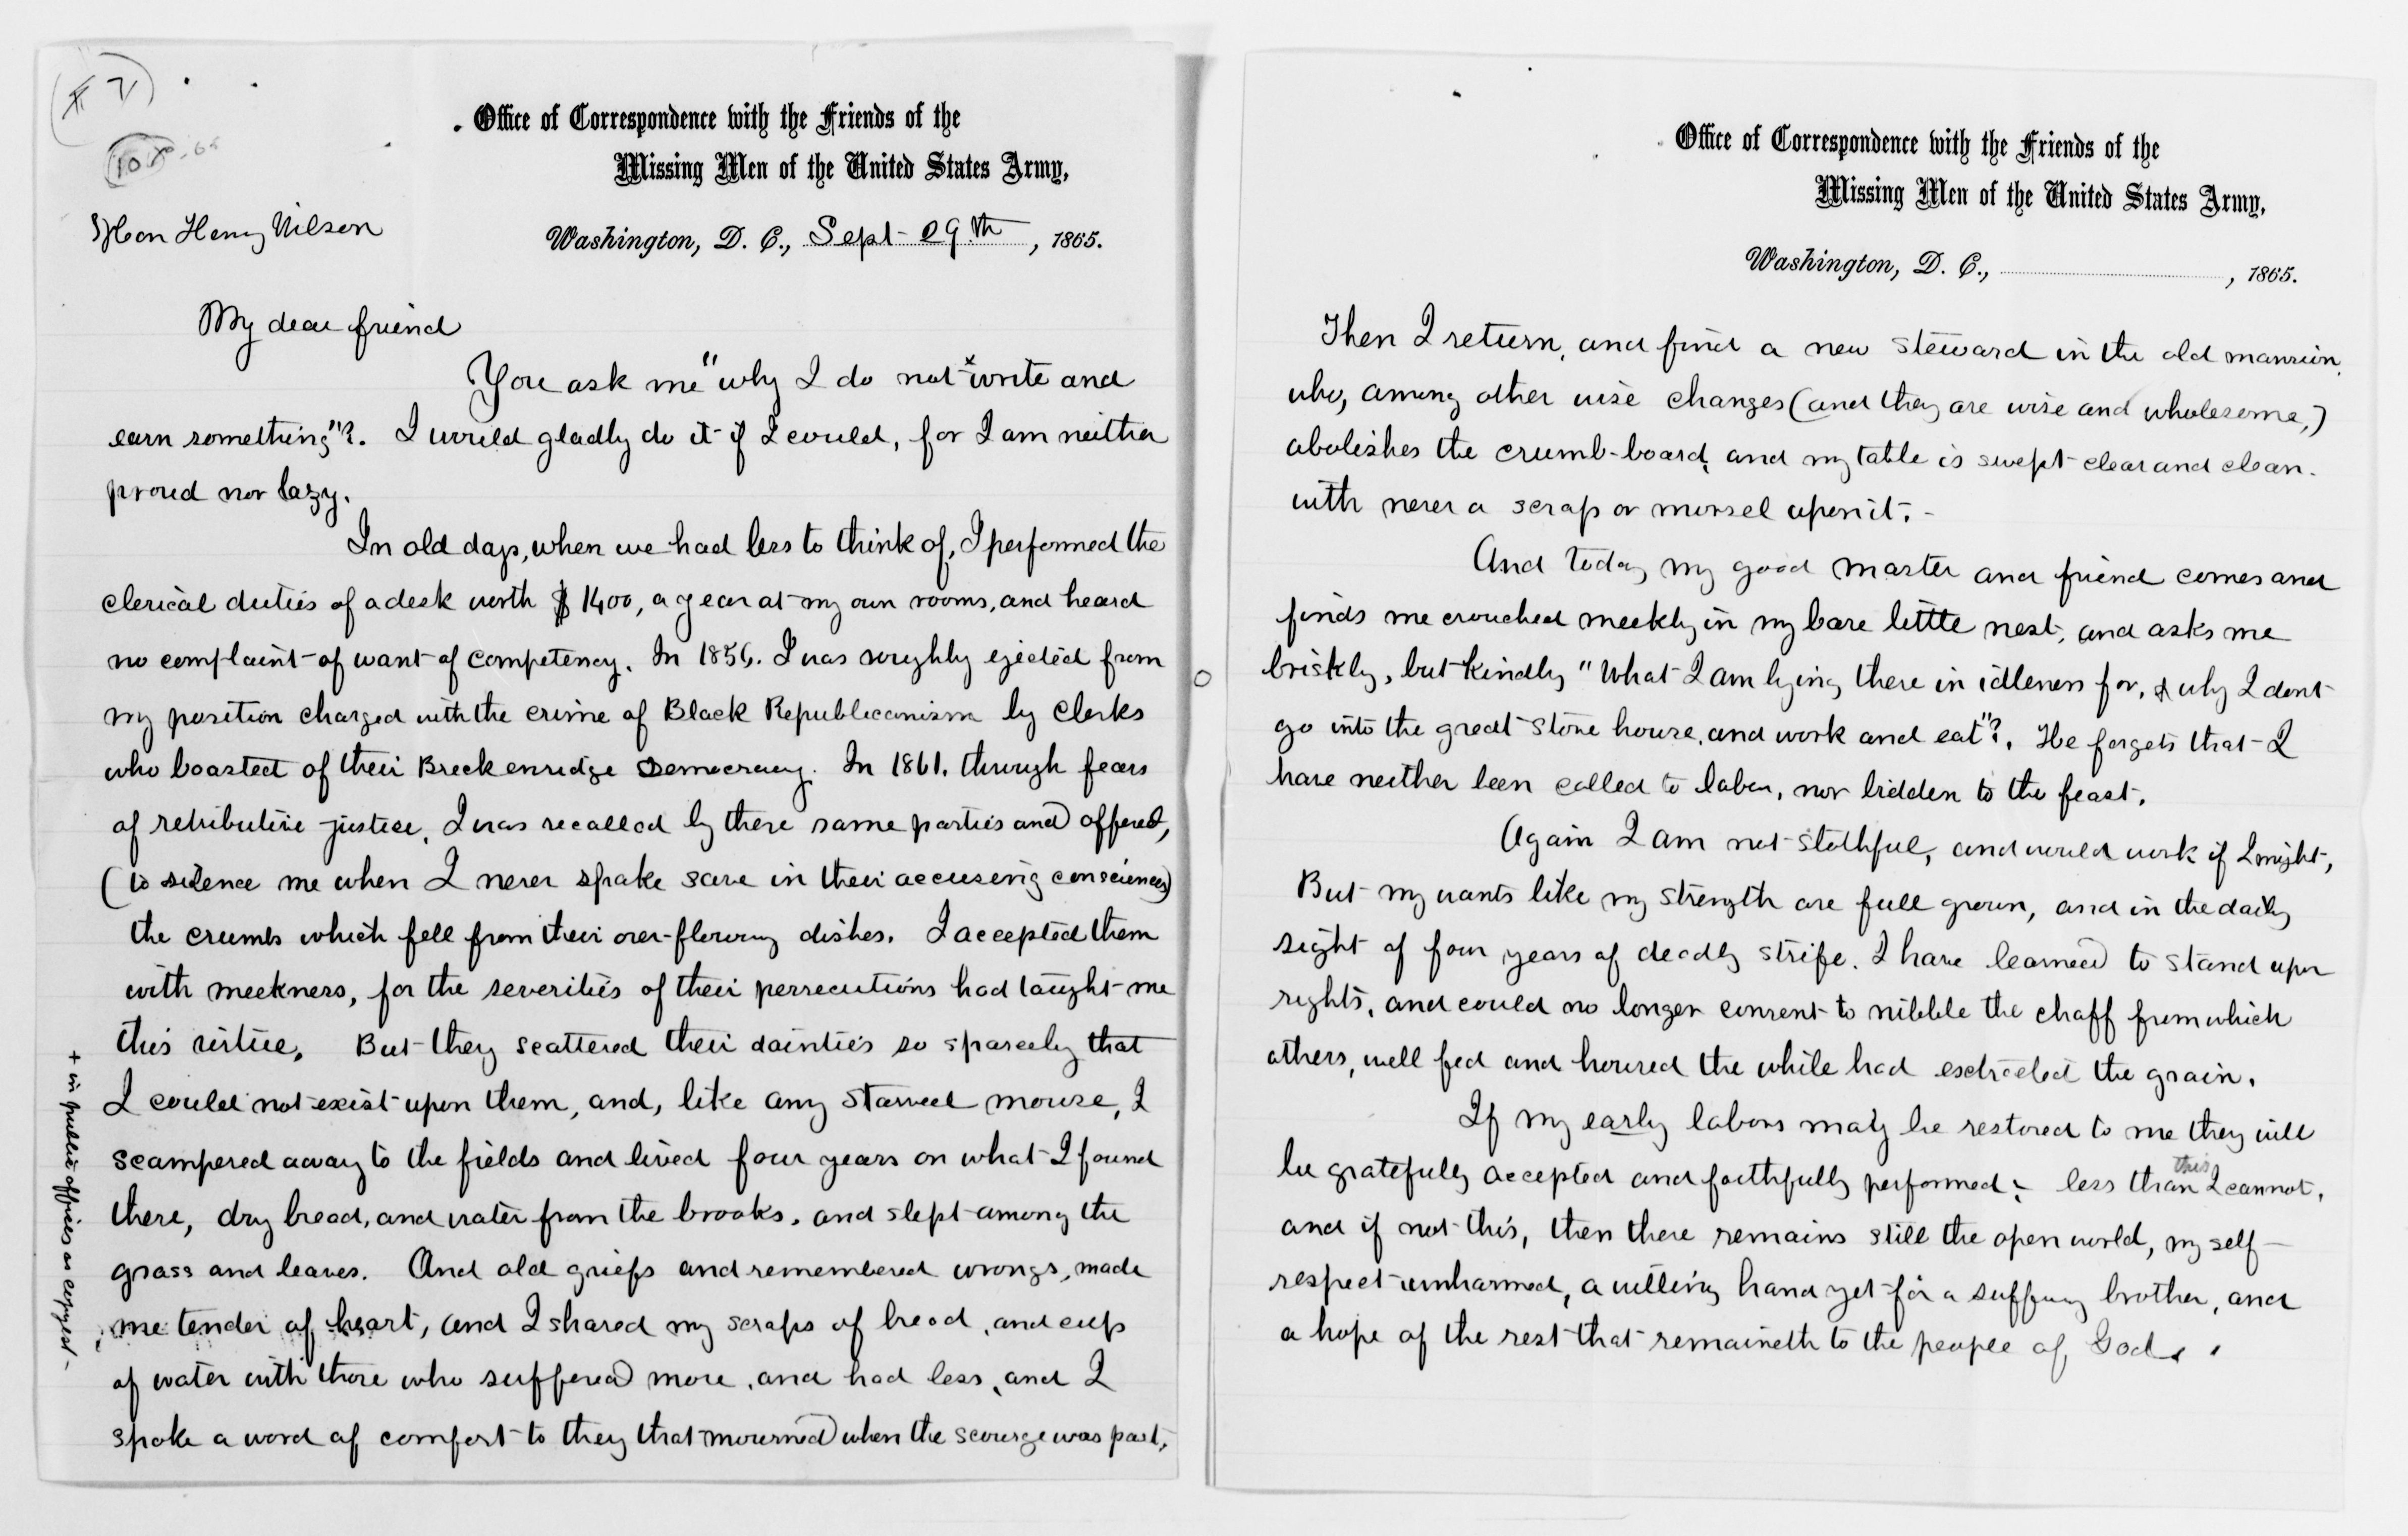 Office of Correspondence with the Friends of the
Missing Men of the United States Army,
Hon Henry Wilson
Washington, D. C., Sept 29th, 1865.
My dear friend
You ask me "why I do not + write and
earn something"?. I would gladly do it if I could, for I am neither
proud nor lazy.
In old days, when we had less to think of, I performed the
clerical duties of a desk worth $1400, a year at my own rooms, and heard
no complaint of want of competency. In 1856. I was roughly ejected from
my position charged with the crime of Black Republicanism by clerks
who boasted of their Breckenridge Democracy. In 1861. through fears
of retributive justice, I was recalled by these same parties and offered,
(to silence me when I never spake save in their accusing consciences)
the crumbs which fell from their over-flowing dishes. I accepted them
with meekness, for the severities of their persecutions had taught me
this virtue. But they scattered their dainties so sparcely that
I could not exist upon them, and, like any starved mouse, I
scampered away to the fields and lived four years on what I found
there, dry bread, and water from the brooks, and slept among the
grass and leaves. And old griefs and remembered wrongs, made
me tender of heart, and I shared my scraps of bread, and cup
of water with those who suffered more, and had less, and I
spoke a word of comfort to they that mourned when the scourge was past,
+ in public offices as copyest-
Office of Correspondence with the Friends of the
Missing Men of the United States Army,
Washington, D. C., , 1865.
Then I return, and find a new steward in the old mansion,
who, among other wise changes (and they are wise and wholesome,)
abolishes the crumb-board, and my table is swept clear and clean.
with never a scrap or morsel upon it. -
And today my good master and friend comes and
finds me crouched meekly in my bare little nest, and asks me
briskly, but kindly "What I am lying there in idleness for, & why I dont
go into the great stone house, and work and eat"?. He forgets that I
have neither been called to labor, nor bidden to the feast.
Again I am not slothful, and would work if I might,
But my wants like my strength are full grown, and in the daily
sight of four years of deadly strife. I have learned to stand upon
rights, and could no longer consent to nibble the chaff from which
others, well fed and housed the while had extracted the grain.
If my early labors may be restored to me they will
be gratefully accepted and faithfully performed; less than this I cannot,
and if not this, then there remains still the open world, my self-
respect unharmed, a willing hand yet for a suffring brother, and
a hope of the rest that remaineth to the people of God.